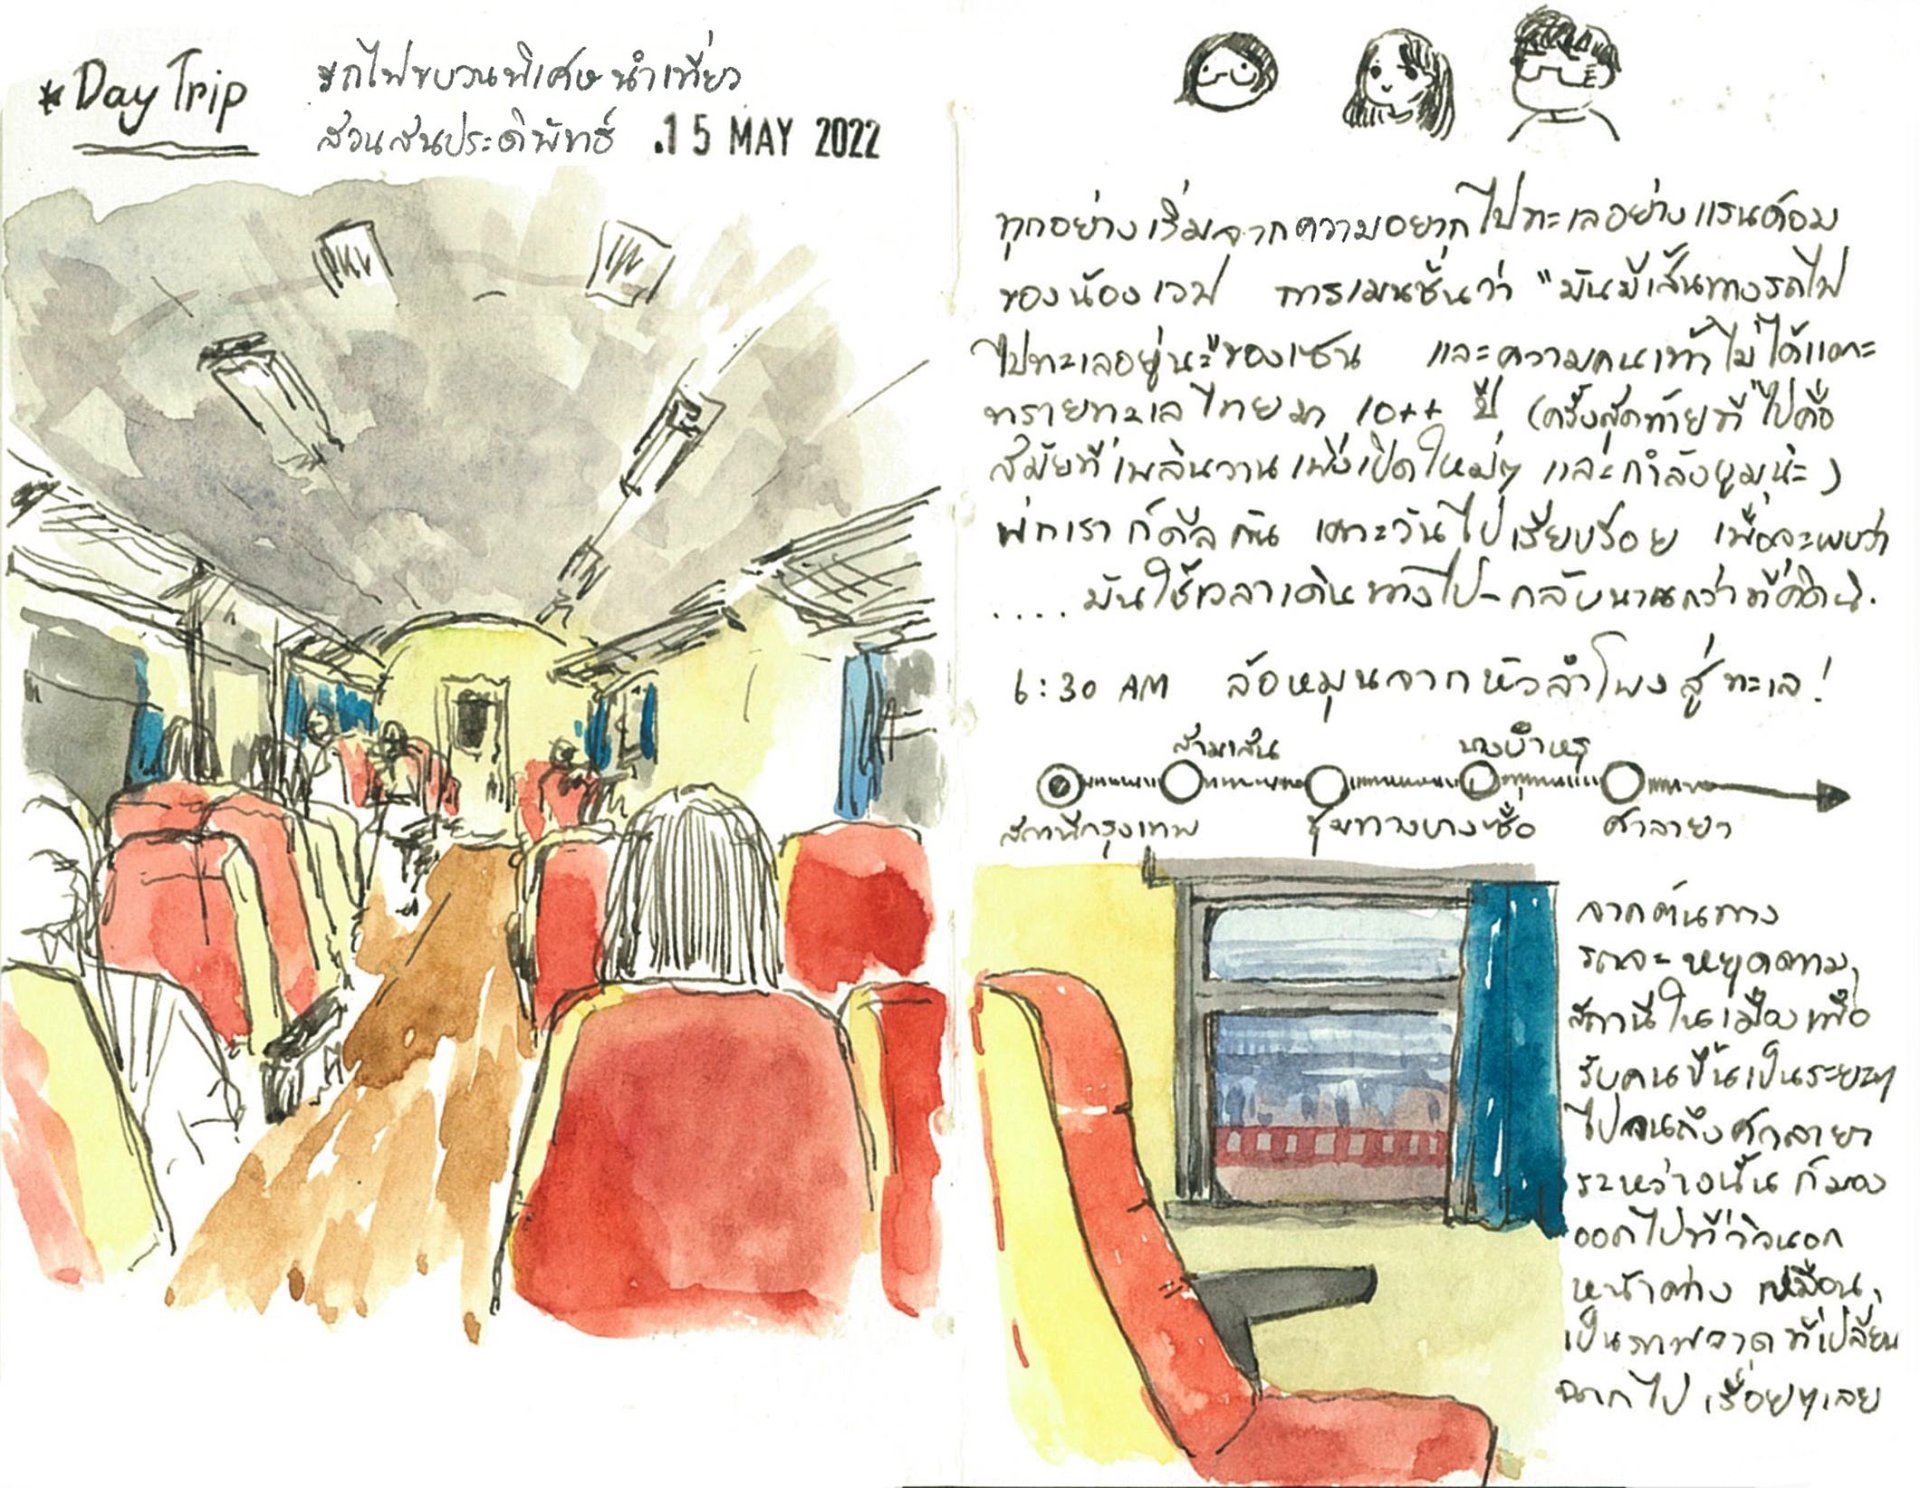 *Day Trip
รถไฟขบวนพิเศษนำเที่ยว
สวนสนประดิพัทธ์ .15 MAY 2022
ทุกอย่างเริ่มจากความอยากไปทะเลอย่างแรนด้อม
ของน้องเวฟ การเมนชั่นว่า "มันมีเส้นทางรถไฟ
ไปทะเลอยู่นะ" ของเซน และความคนเท้าไม่ได้แตะ
ทรายทะเลไทยมา 10++ ปี (ครั้งสุดท้ายที่ไปคือ
สมัยที่เพลินวานเพิ่งเปิดใหม่ๆ และกำลังบูมน่ะ)
พวกเราก็ดีลกัน เคาะวันไปเรียบร้อย เพื่อจะพบว่า
.... มันใช้เวลาเดินทางไป-กลับนานกว่าที่คิดนิ.
6:30 AM ล้อหมุนจากหัวลำโพงสู่ทะเล!
สามเสน บางบำหรุ
สถานีกรุงเทพ ชุมทางบางซื่อ ศาลายา
จากต้นทาง
รถจะหยุดตาม
สถานีในเมืองเพื่อ
รับคนขึ้นเป็นระยะๆ
ไปจนถึงศาลายา
ระหว่างนั้นก็มอง
ออกไปที่วิวนอก
หน้าต่าง เหมือน
เป็นภาพวาดที่เปลี่ยน
ฉากไปเรื่อยๆเลย